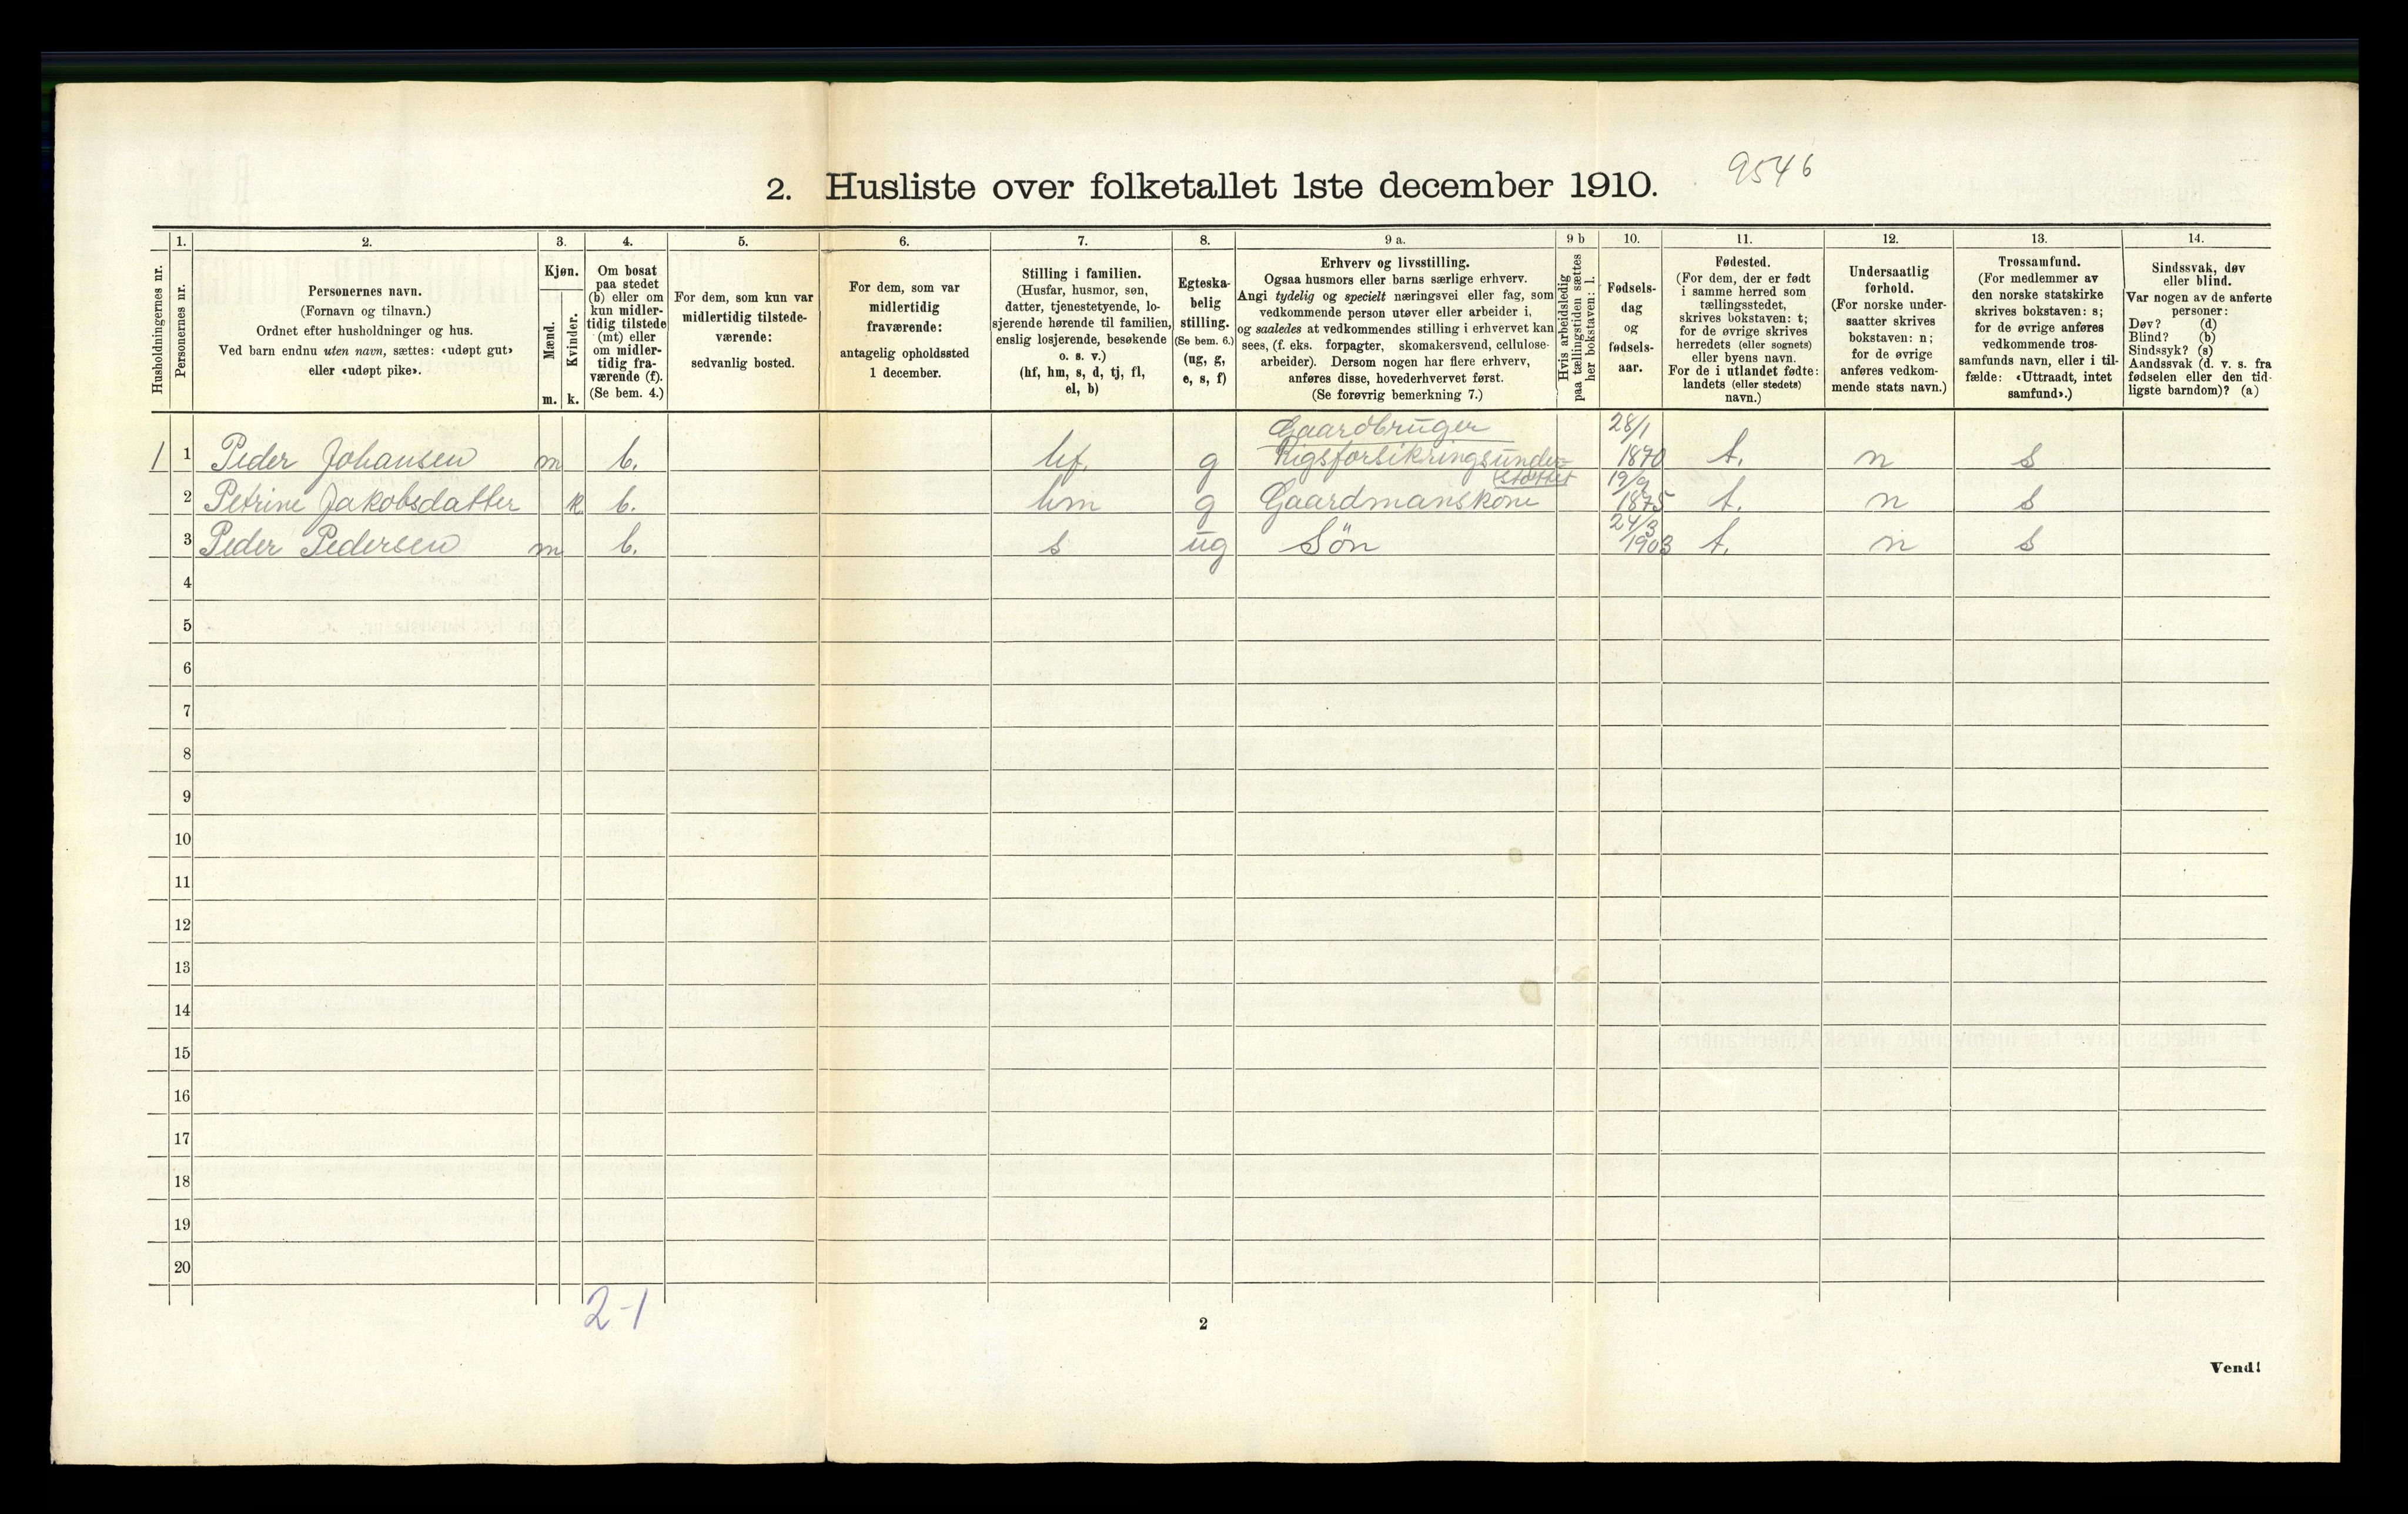 9546
2. Husliste over folketallet 1ste december 1910.
Husholdningernes nr.
1.
Personernes nr.
2.
Personernes navn.
(Fornavn og tilnavn.)
Ordnet efter husholdninger og hus.
Ved barn endnu uten navn, sættes: «udøpt gut»
eller «udøpt pike».
3.
Kjøn.
Mænd.
Kvinder.
m. k.
4.
Om bosat
paa stedet
(b) eller om
kun midler-
tidig tilstede
(mt) eller
om midler-
tidig fra-
værende (f).
(Se bem. 4.)
5.
For dem, som kun var
midlertidig tilstede-
værende:
sedvanlig bosted.
6.
For dem, som var
midlertidig
fraværende:
antagelig opholdssted
1 december.
7.
Stilling i familien.
(Husfar, husmor, søn,
datter, tjenestetyende, lo-
sjerende hørende til familien,
enslig losjerende, besøkende
o. s. v.)
(hf, hm, s, d, tj, fl,
el, b)
8.
Egteska-
belig
stilling.
(Se bem. 6.)
(ug, g,
e, s, f)
9 a.
Erhverv og livsstilling.
Ogsaa husmors eller barns særlige erhverv.
Angi tydelig og specielt næringsvei eller fag, som
vedkommende person utøver eller arbeider i,
og saaledes at vedkommendes stilling i erhvervet kan
sees, (f. eks. forpagter, skomakersvend, cellulose-
arbeider). Dersom nogen har flere erhverv,
anføres disse, hovederhvervet først.
(Se forøvrig bemerkning 7.)
9 b
Hvis arbeidsledig
paa tællingstiden sættes
her bokstaven: l.
10.
Fødsels-
dag
og
fødsels-
aar.
11.
Fødested.
(For dem, der er født
i samme herred som
tællingsstedet,
skrives bokstaven: t;
for de øvrige skrives
herredets (eller sognets)
eller byens navn.
For de i utlandet fødte:
landets (eller stedets)
navn.)
12.
Undersaatlig
forhold.
(For norske under-
saatter skrives
bokstaven: n;
for de øvrige
anføres vedkom-
mende stats navn.)
13.
Trossamfund.
(For medlemmer av
den norske statskirke
skrives bokstaven: s;
for de øvrige anføres
vedkommende tros-
samfunds navn, eller i til-
fælde: «Uttraadt, intet
samfund».)
14.
Sindssvak, døv
eller blind.
Var nogen av de anførte
personer:
Døv? (d)
Blind? (b)
Sindssyk? (s)
Aandssvak (d. v. s. fra
fødselen eller den tid-
ligste barndom)? (a)
Gaardbruger 28/1
1 1 Peder Johansen m b. hf. g Rigsforsikringsunder- 1870 t. n s
støttet 19/9
2 Petrine Jakobsdatter k b. hm g Gaardmanskone 1875 t. n s
24/3
3 Peder Pedersen m b. s ug Søn 1903 t. n s
4
5
6
7
8
9
10
11
12
13
14
15
16
17
18
19
20
2-1
2
Vend!